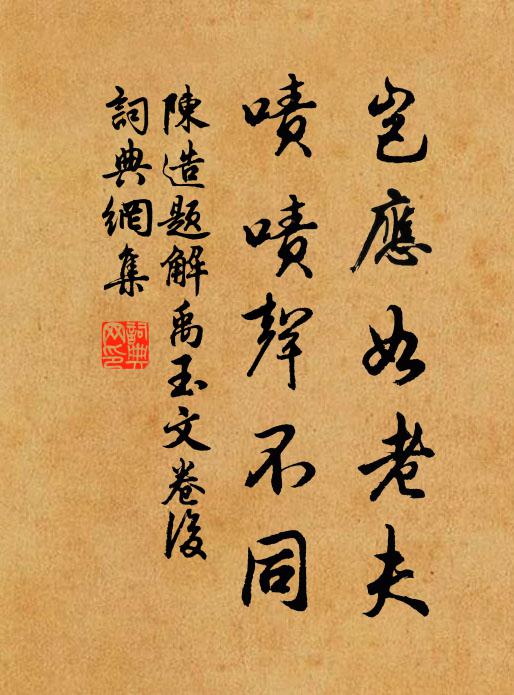 豈應如老夫
嘖嘖聲不同
陳造題解禹玉文卷後
詞典網集
詞典网印